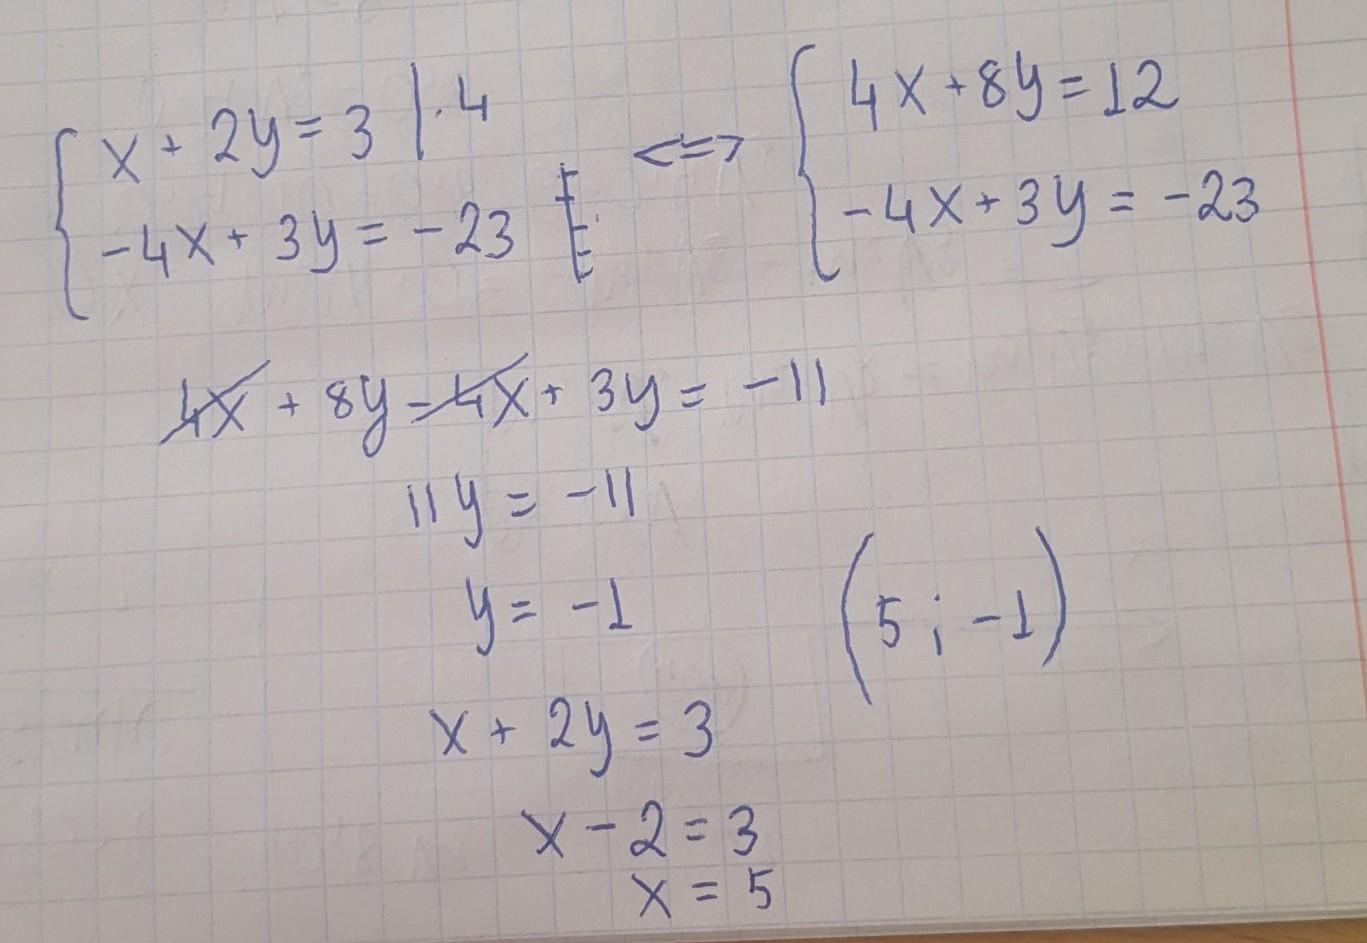 x + 2y = 3 | · 4
-4x + 3y = -23
<=>
4x + 8y = 12
-4x + 3y = -23
4x + 8y - 4x + 3y = -11
11y = -11
y = -1
(5 ; -1)
x + 2y = 3
x - 2 = 3
x = 5